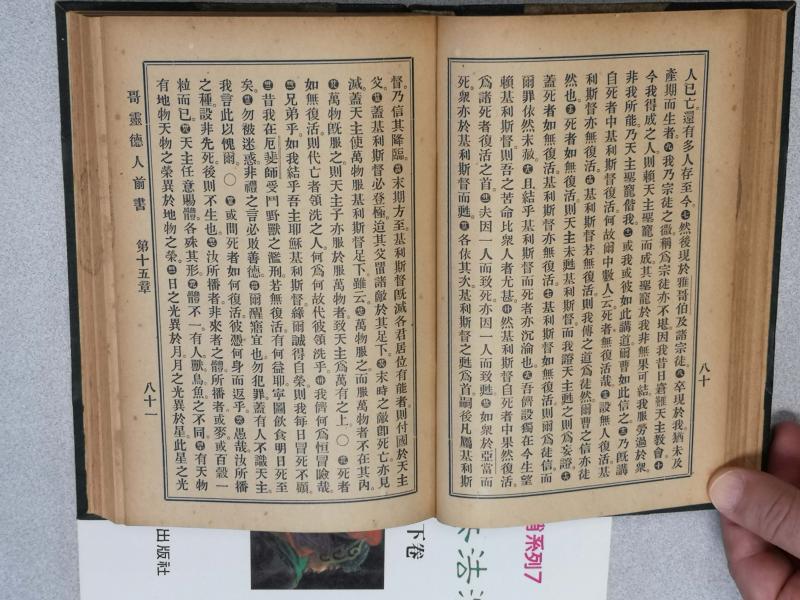 八十
人已亡還有多人存至今。七然後現於雅哥伯及諸宗徒。八卒現於我猶未及
產期而生者。九我乃宗徒之微稱爲宗徒亦不堪因我昔日窘難天主教會十
今我得成之人則賴天主聖寵而成其聖寵於我非無果可結我服勞過於衆
非我所能乃天主聖寵偕我。或我或彼如此講道爾曹如此信之乃旣講
自死者中基利斯督復活何故爾中數人云死者無復活哉。設無人復活基
利斯督亦無復活。基利斯督若無復活則我傳之道爲徒然爾曹之信亦徒
然也。死者如無復活則天主未甦基利斯督而我證天主甦之則爲妄證。
蓋死者如無復活基利斯督亦無復活。基利斯督如無復活則爾爲徒信而
爾罪依然未赦。且結乎基利斯督而死者亦沉淪也吾儕設獨在今生望
賴基利斯督則吾之苦命比衆人者尤甚。然基利斯督自死者中果然復活
爲諸死者復活之首。夫因一人而致死亦因一人而致甦。如衆於亞當而
死衆亦於基利斯督而甦。各依其次基利斯督之甦爲首嗣後凡屬基利斯
督乃信其降臨。末期方至基利斯督旣滅各君居位有能者則付國於天主
父。蓋基利斯督必登極迨其父置諸敵於其足下。末時之敵即死亡亦見
滅蓋天主使萬物服基利斯督足下雖云。萬物服之而服萬物者不在其內
萬物旣服之則天主子亦服於服萬物者致天主爲萬有之上。〇死者
如無復活則代亡者領洗之人何爲何故代彼領洗乎。我儕何爲恒冒險哉。
兄弟乎如我結乎吾主耶穌基利斯督緣爾誠得自榮則我每日冒死不顧
昔我在厄斐師受鬥野獸之濫刑若無復活有何益耶寧圖飲食明日死至
矣。勿被迷惑非禮之言必敗善德。爾醒寤宜也勿犯罪蓋有人不識天主
我言此以愧爾。〇或問死者如何復活彼憑何身而返乎。愚哉汝所播
之種設非先死後則不生也。汝所播者非來者之體所播者或麥或百穀一
粒而已。天主任意賜體各殊其形。體不一。有人獸鳥魚之不同。有天物
有地物天物之榮異於地物之榮。日之光異於月月之光異於星此星之光
哥靈德人前書 第十五章 八十一
系列7
活
下卷
出版社